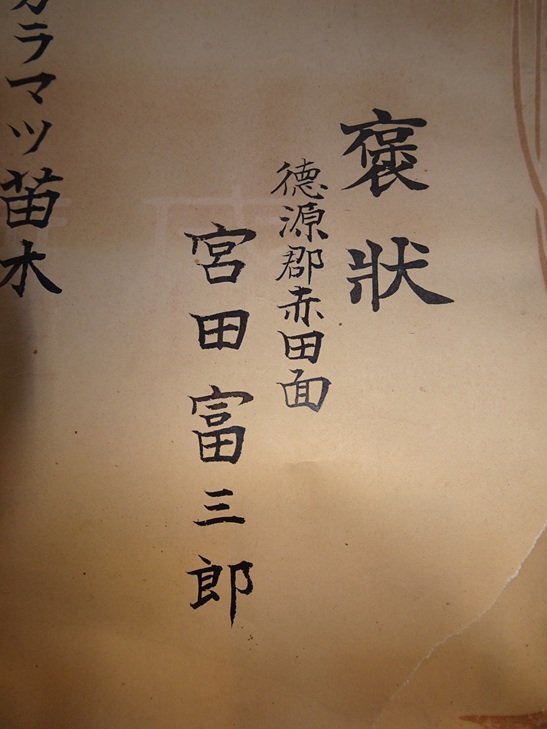 褒狀
徳源郡赤田面
宮田富三郎
カラマツ苗木